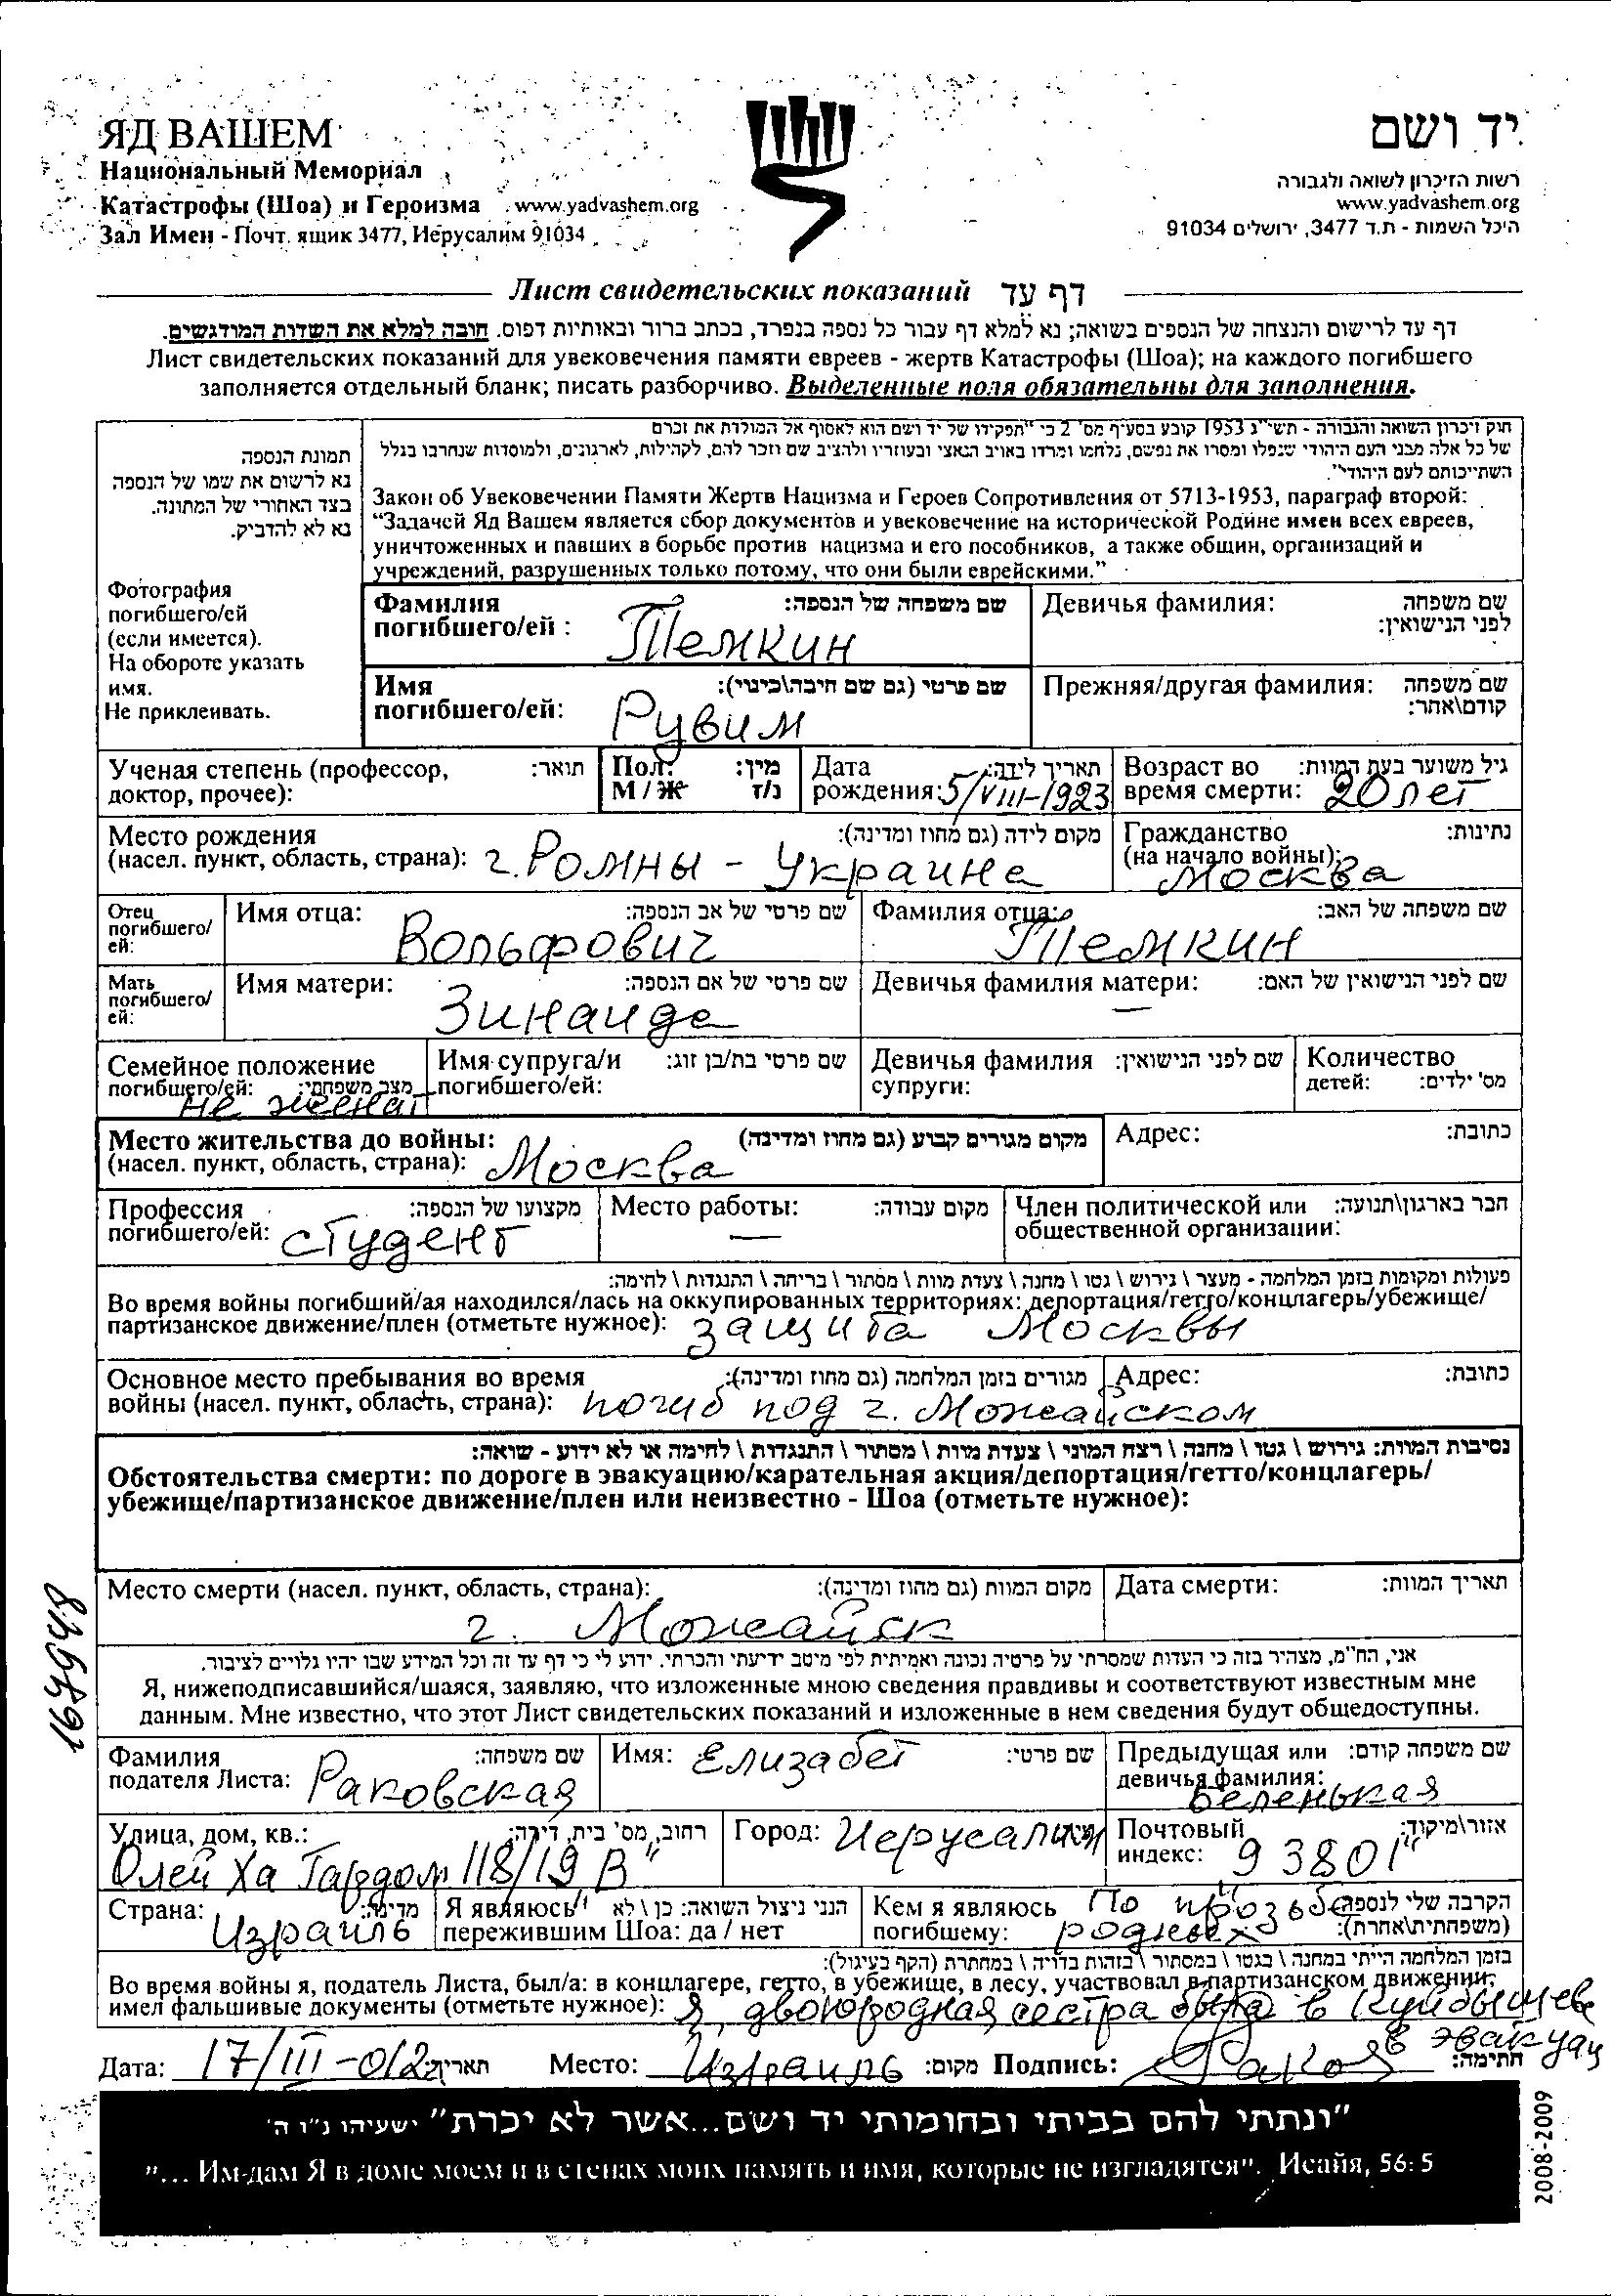 ЯД ВАШЕМ
Национальный Мемориал
Катастрофы (Шоа) и Героизма www.yadvashem.org
Зал Имен - Почт. ящик 3477, Иерусалим 91034
יד ושם
רשות הזיכרון לשואה ולגבורה
www.yadvashem.org
היכל השמות - ת.ד 3477, ירושלים 91034
Лист свидетельских показаний דף עד
דף עד לרישום והנצחה של הנספים בשואה; נא למלא דף עבור כל נספה בנפרד, בכתב ברור ובאותיות דפוס. חובה למלא את השדות המודגשים.
Лист свидетельских показаний для увековечения памяти евреев - жертв Катастрофы (Шоа); на каждого погибшего
заполняется отдельный бланк; писать разборчиво. Выделенные поля обязательны для заполнения.
תמונת הנספה
נא לרשום את שמו של הנספה
בצד האחורי של התמונה.
נא לא להדביק.
Фотография
погибшего/ей
(если имеется).
На обороте указать
имя.
Не приклеивать.
חוק זיכרון השואה והגבורה - תשי"ג 1953 קובע בסעיף מס' 2 כי "תפקידו של יד ושם הוא לאסוף אל המולדת את זכרם
של כל אלה מבני העם היהודי שנפלו ומסרו את נפשם, נלחמו ומרדו באויב הנאצי ובעוזריו ולהציב שם וזכר להם, לקהילות, לארגונים, ולמוסדות שנחרבו בגלל
השתייכותם לעם היהודי".
Закон об Увековечении Памяти Жертв Нацизма и Героев Сопротивления от 5713-1953, параграф второй:
“Задачей Яд Вашем является сбор документов и увековечение на исторической Родине имен всех евреев,
уничтоженных и павших в борьбе против нацизма и его пособников, а также общин, организаций и
учреждений, разрушенных только потому, что они были еврейскими.”
Фамилия שם משפחה של הנספה:
погибшего/ей : Темкин
Девичья фамилия: שם משפחה
לפני הנישואין:
Имя שם פרטי (גם שם חיבה\כינוי):
погибшего/ей: Рувим
Прежняя/другая фамилия: שם משפחה
קודם\אחר:
Ученая степень (профессор, תואר:
доктор, прочее):
Пол: מין:
М / Ж ז/נ
Дата תאריך לידה:
рождения: 5/VIII-1923
Возраст во גיל משוער בעת המוות:
время смерти: 20 лет
Место рождения מקום לידה (גם מחוז ומדינה):
(насел. пункт, область, страна): г. Ромны - Украина
Гражданство נתינות:
(на начало войны): Москва
Отец
погибшего/
ей:
Имя отца: שם פרטי של אב הנספה:
Вольфович
Фамилия отца: שם משפחה של האב:
Темкин
Мать
погибшего/
ей:
Имя матери: שם פרטי של אם הנספה:
Зинаида
Девичья фамилия матери: שם לפני הנישואין של האם:
—
Семейное положение
погибшего/ей: מצב משפחתי:
не женат
Имя супруга/и שם פרטי בת/בן זוג:
погибшего/ей:
Девичья фамилия שם לפני הנישואין:
супруги:
Количество
детей: מס' ילדים:
Место жительства до войны: מקום מגורים קבוע (גם מחוז ומדינה)
(насел. пункт, область, страна): Москва
Адрес: כתובת:
Профессия מקצועו של הנספה:
погибшего/ей: студент
Место работы: מקום עבודה:
—
Член политической или חבר בארגון\תנועה:
общественной организации:
פעולות ומקומות בזמן המלחמה - מעצר \ גירוש \ גטו \ מחנה \ צעדת מוות \ מסתור \ בריחה \ התנגדות \ לחימה:
Во время войны погибший/ая находился/лась на оккупированных территориях: депортация/гетто/концлагерь/убежище/
партизанское движение/плен (отметьте нужное): защита Москвы
Основное место пребывания во время מגורים בזמן המלחמה (גם מחוז ומדינה):
войны (насел. пункт, область, страна): погиб под г. Можайском
Адрес: כתובת:
נסיבות המוות: גירוש \ גטו \ מחנה \ רצח המוני \ צעדת מוות \ מסתור \ התנגדות \ לחימה או לא ידוע - שואה:
Обстоятельства смерти: по дороге в эвакуацию/карательная акция/депортация/гетто/концлагерь/
убежище/партизанское движение/плен или неизвестно - Шоа (отметьте нужное):
Место смерти (насел. пункт, область, страна): מקום המוות (גם מחוז ומדינה):
г. Можайск
Дата смерти: תאריך המוות:
אני, הח"מ, מצהיר בזה כי העדות שמסרתי על פרטיה נכונה ואמיתית לפי מיטב ידיעתי והכרתי. ידוע לי כי דף עד זה וכל המידע שבו יהיו גלויים לציבור.
Я, нижеподписавшийся/шаяся, заявляю, что изложенные мною сведения правдивы и соответствуют известным мне
данным. Мне известно, что этот Лист свидетельских показаний и изложенные в нем сведения будут общедоступны.
Фамилия שם משפחה:
подателя Листа: Раковская
Имя: Елизабет שם פרטי:
Предыдущая или שם משפחה קודם:
девичья фамилия:
Беленькая
Улица, дом, кв.: רחוב, מס' בית, דירה:
Олей Ха Гардом 118/19 В"
Город: Иерусалим
Почтовый אזור\מיקוד:
индекс: 93801
Страна: מדינה:
Израиль
Я являюсь הנני ניצול השואה: כן \ לא
пережившим Шоа: да / нет
Кем я являюсь По прозьбе הקרבה שלי לנספה
погибшему: родных (משפחתית\אחרת):
בזמן המלחמה הייתי במחנה \ בגטו \ במסתור \ בזהות בדויה \ במחתרת (הקף בעיגול):
Во время войны я, податель Листа, был/а: в концлагере, гетто, в убежище, в лесу, участвовал в партизанском движении,
имел фальшивые документы (отметьте нужное): Я двоюродная сестра была в Куйбышеве
в эвакуац
Дата: 17/III-012 תאריך: Место: Израиль מקום: Подпись: חתימה:
"ונתתי להם בביתי ובחומותי יד ושם...אשר לא יכרת" ישעיהו נ"ו ה'
"... Им дам Я в доме моем и в стенах моих память и имя, которые не изгладятся". Исайя, 56: 5
2008-2009